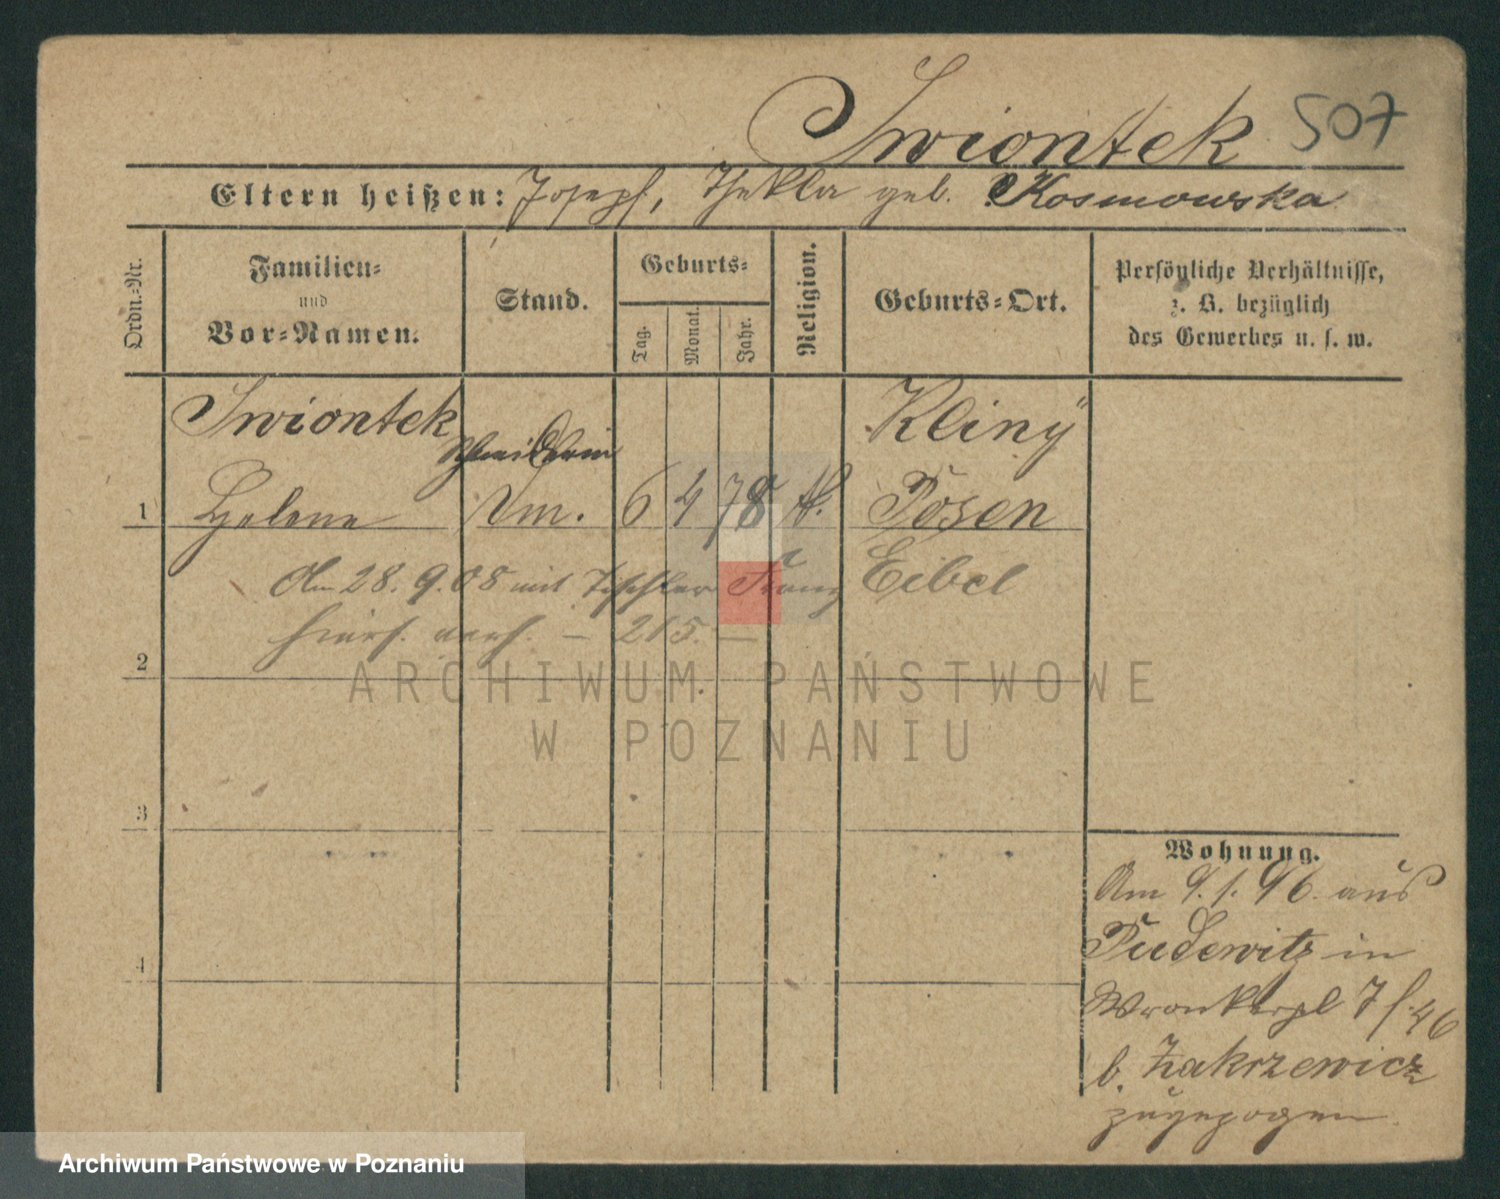 Swiontek 507
Eltern heißen: Joseph, Thekla geb. Kosmowska
Ordn.-Nr.
Familien-
und
Vor-Namen.
Stand.
Geburts-
Tag.
Monat.
Jahr.
Religion.
Geburts-Ort.
Persönliche Verhältnisse,
z. B. bezüglich
des Gewerbes u. s. w.
Swiontek Kliny
Schneiderin
1 Helene Um. 6 4 78 k. Posen
Am 28. 9. 08 mit Tischler Franz Eibel
hiers. verh. — 215. —
2
3
4
Wohnung.
Am 9. 1. 96. aus
Pudewitz in
Wronkerpl 7 f. 46
b. Zakrzewicz
zugezogen
ARCHIWUM PAŃSTWOWE
W POZNANIU
Archiwum Państwowe w Poznaniu